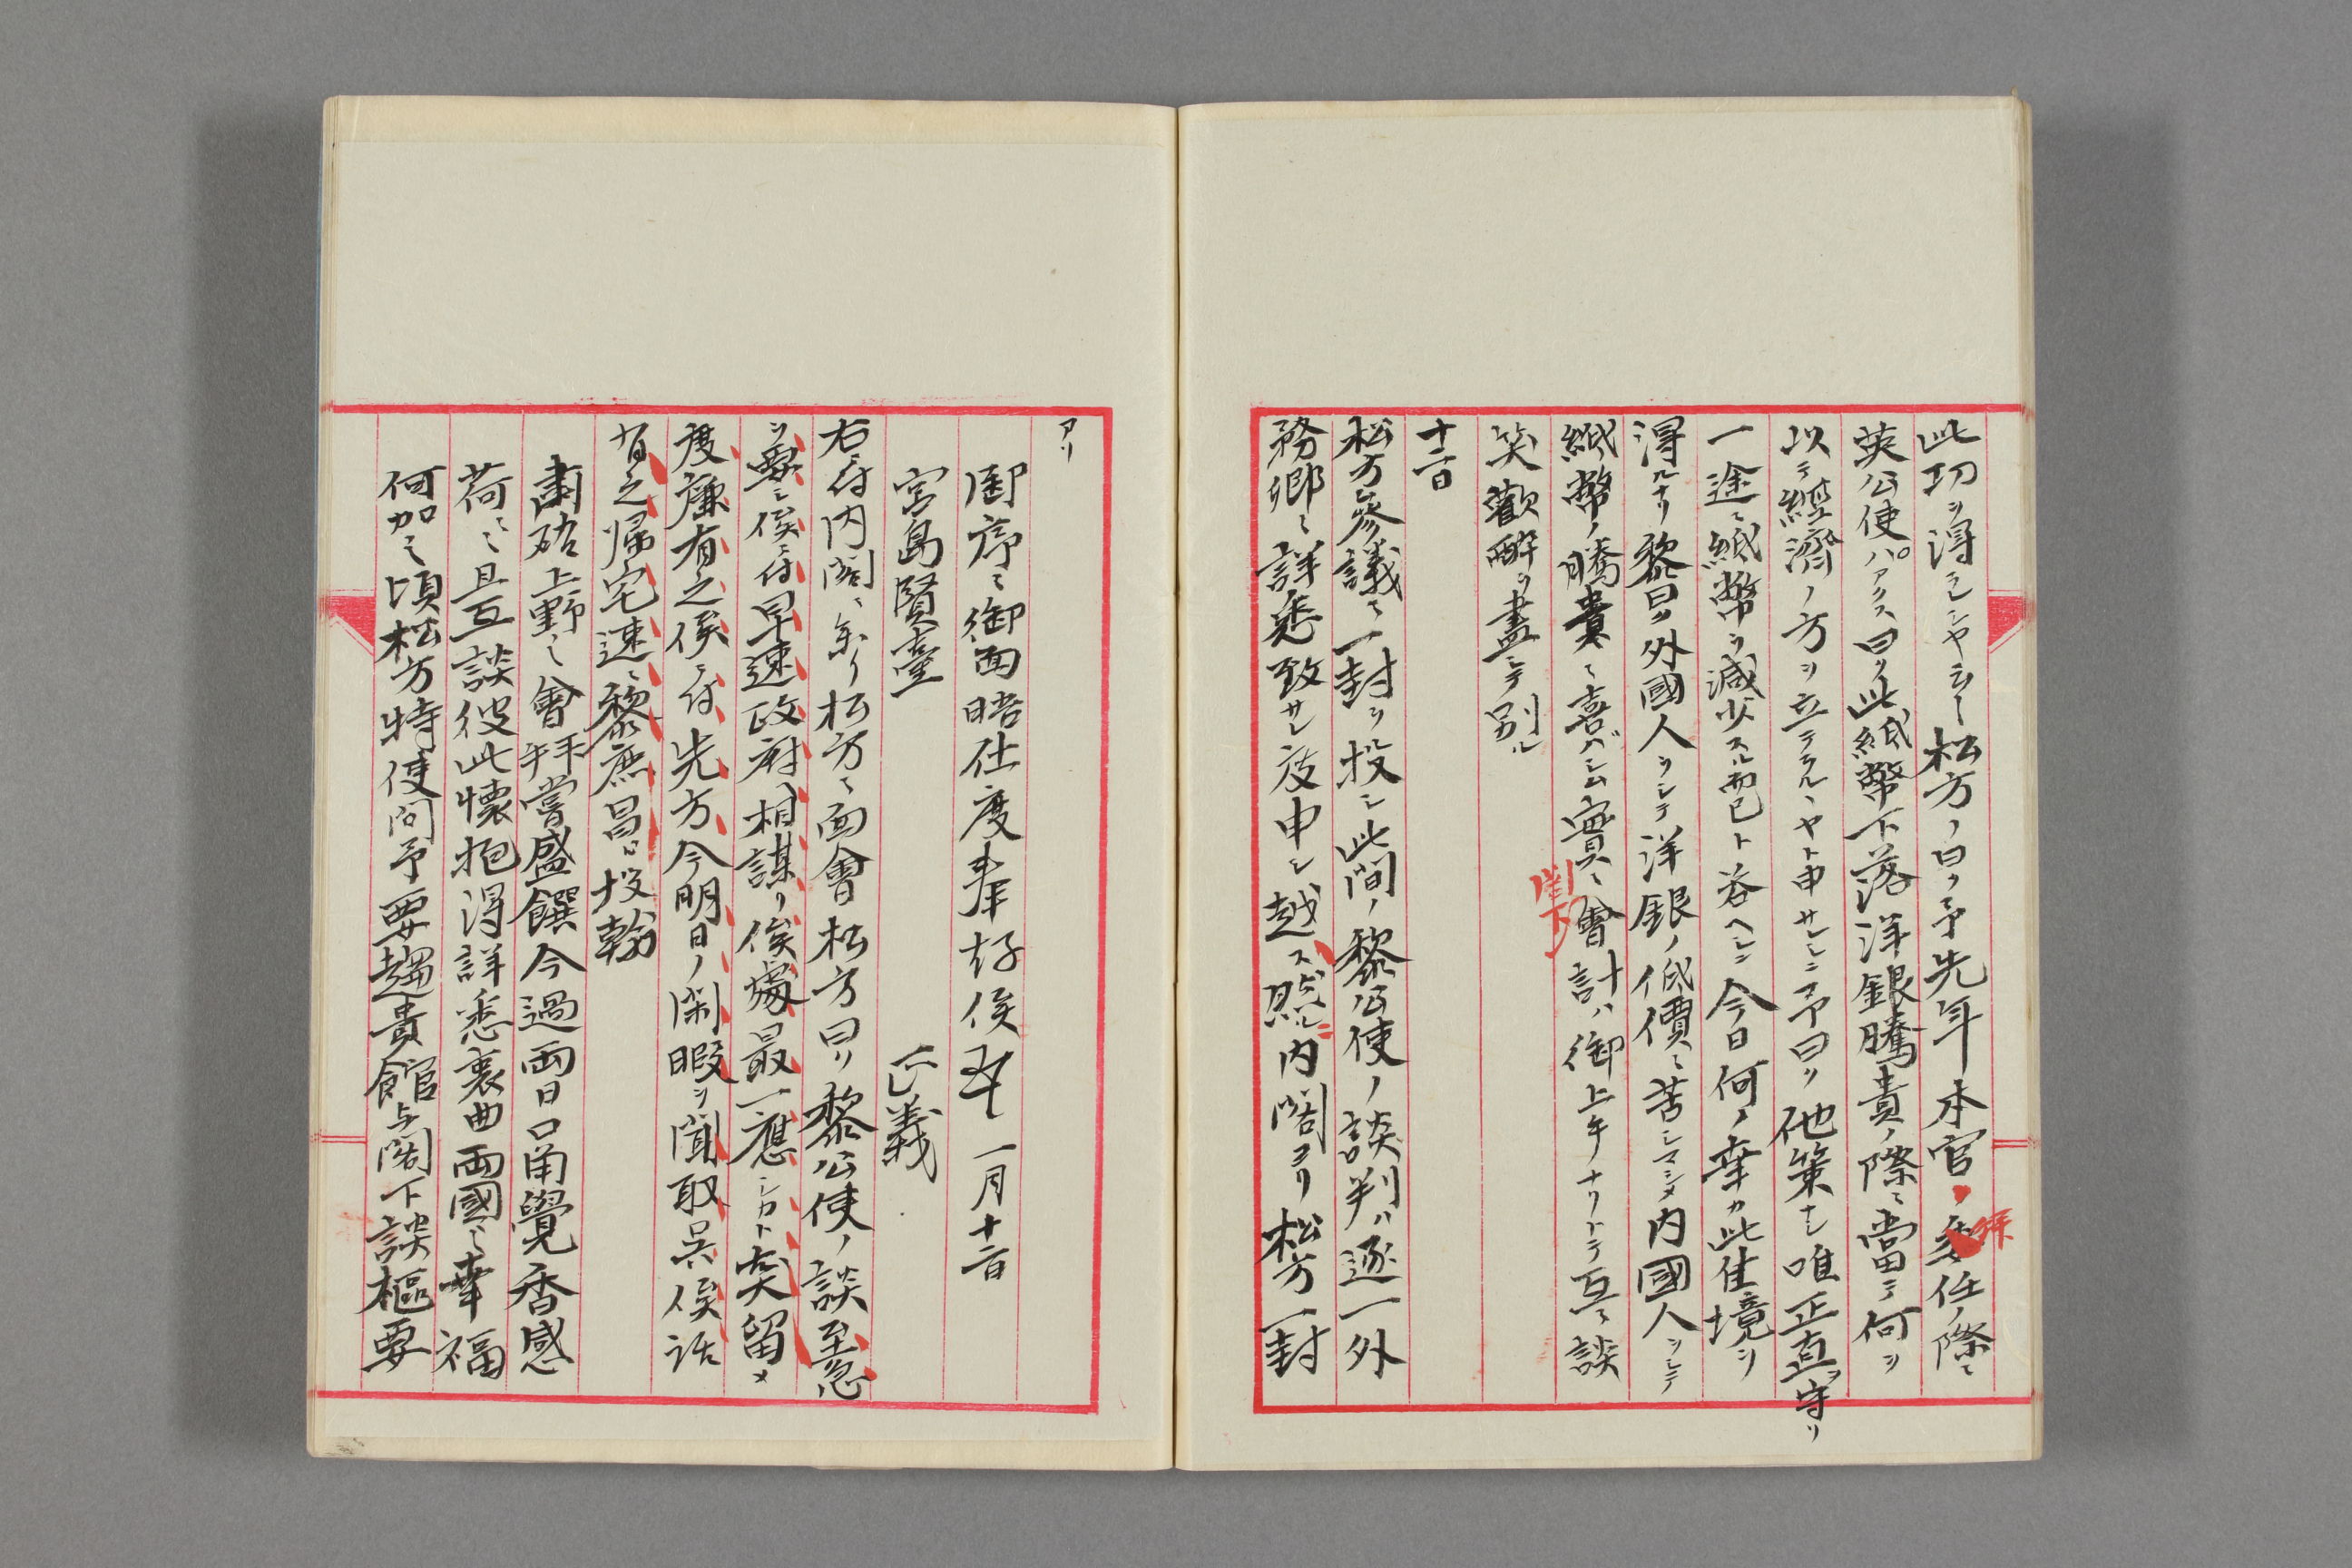 此功ヲ得ラレシヤ云々松方ノ曰ク予先年本官ノ委任ノ際ニ
拜
英公使パアクス曰ク此紙幣下落洋銀騰貴ノ際ニ當テ何ヲ
以テ經濟ノ方ヲ立テラルヽヤト申サレシニ予曰ク他策ナシ唯正直ヲ守リ
一途ニ紙幣ヲ減少スル而已ト答ヘシニ今日何ノ幸カ此佳境ヲ
得ルナリ黎曰ク外國人ヲシテ洋銀ノ低價ニ苦シマシメ内國人ヲシテ
紙幣ノ騰貴ニ喜バシム實ニ會計ハ御上手ナリトテ互ニ談
閣下ノ
笑歡酔ヲ盡シテ別ル
十二日
松方參議ニ一封ヲ投シ此間ノ黎公使ノ談判ハ逐一外
務卿ニ詳悉致サレ度申シ越ス然ルニ内閣ヨリ松方一封
アリ
御序ニ御面晤仕度奉存候 一月十二日
宮島賢臺 正義
右ニ付内閣ヘ参リ松方ニ面會松方曰ク黎公使ノ談至急
ヲ要シ候ニ付早速政府ヘ相謀リ候處最一應シカト突留メ
度廉有之候ニ付先方今明日ノ閑暇ヲ聞取呉候話
有之帰宅速ニ黎庶昌ニ投翰
肅啓上野之會拜嘗盛饌今過兩日口甬覺香感
荷々々且互談彼此懷抱得詳悉衷曲兩國之幸福
何加之頃松方特使問予要趨貴館与閣下談樞要